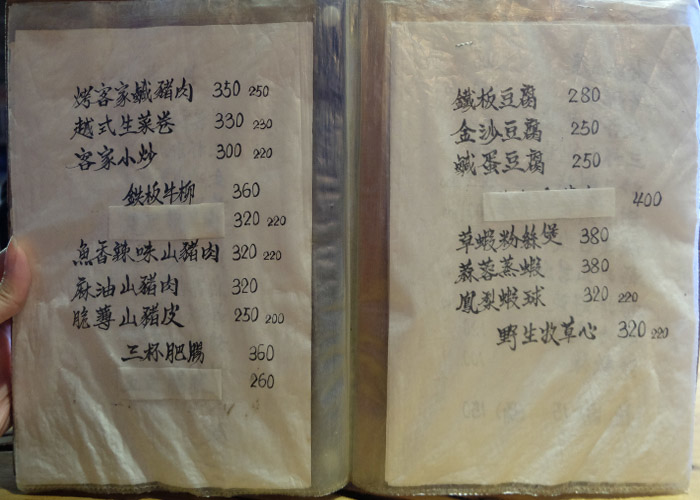 烤客家鹹豬肉 350 250
越式生菜卷 330 230
客家小炒 300 220
鉄板牛柳 360
320 220
魚香辣味山豬肉 320 220
麻油山豬肉 320
脆薄山豬皮 250 200
三杯肥腸 360
260
鐵板豆腐 280
金沙豆腐 250
鹹蛋豆腐 250
400
草蝦粉絲煲 380
蒜蓉蒸蝦 380
鳳梨蝦球 320 220
野生牧草心 320 220